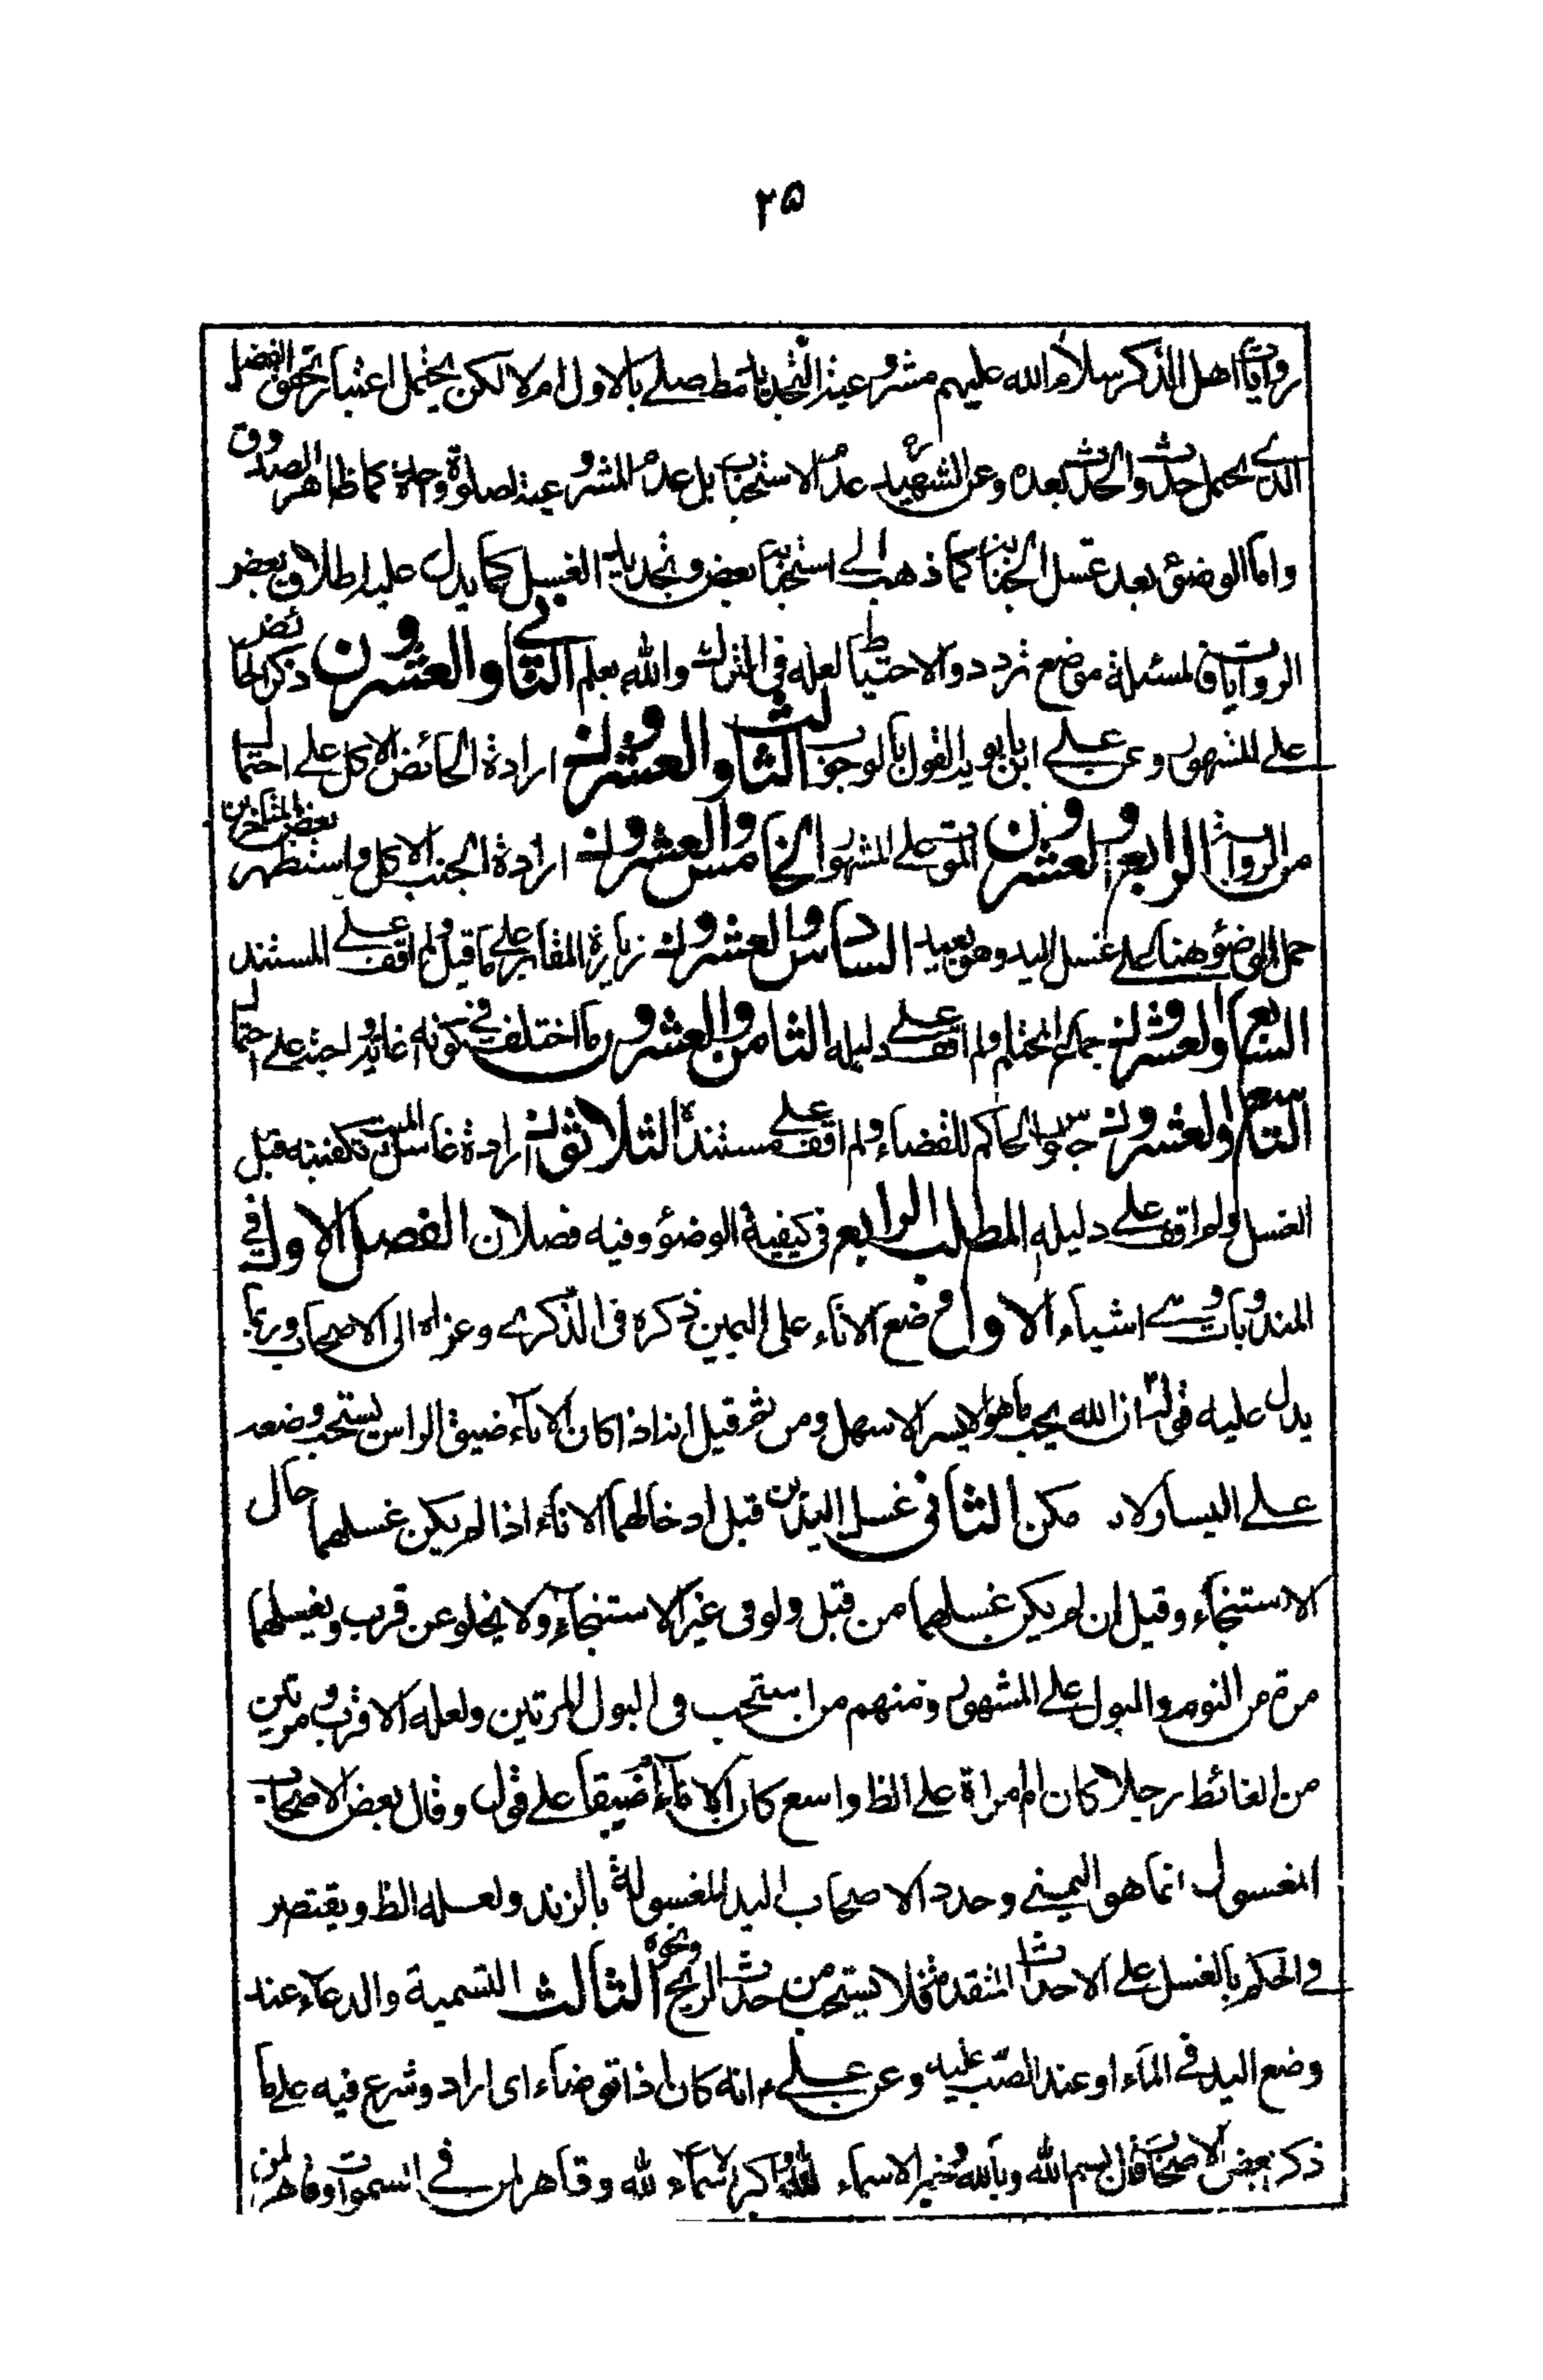 ٢٥
روايات اهل الذكر سلام الله عليهم مشروعية التجديد مط صلى بالاول ام لا لكن يحتمل اعتبار تحقق الفصل
الذى يحتمل حدث والحدث بعده وعن الشهيد ره عدم الاستحباب بل عدم المشروعية لصلوة واحدة كما ظاهر الصدوق
واما الوضوء بعد غسل الجنابة كما ذهب الى استحبابه بعض وتجديد الغسل كما يدل عليه اطلاق بعض
الروايات فالمسئلة موضع تردد والاحتياط لعله فى الترك والله يعلم الثانى والعشرون ذكر الحائض
على المشهور وعن على ابن بابويه القول بالوجوب الثالث والعشرون ارادة الحائض الاكل على احتمال
من الرواية الرابع والعشرون النوم على المشهور الخامس والعشرون ارادة الجنب الاكل واستظهر بعض المتاخرين
حمل الوضوء هنا على غسل اليد وهو بعيد السادس والعشرون زيارة المقابر على ما قيل ولم اقف على المستند
السابع والعشرون جماع المحتلم ولم اقف على دليله الثامن والعشرون ما اختلف فى كونه غاية واجبة على احتمال
التاسع والعشرون جلوس الحاكم للقضاء ولم اقف على مستنده الثلاثون ارادة غاسل الميت تكفينه قبل
الغسل ولم اقف على دليله المطلب الرابع فى كيفية الوضوء وفيه فصلان الفصل الاول فى
المندوبات وهى اشياء الاول وضع الاناء على اليمين ذكره فى الذكرى وعزاه الى الاصحاب وربما
يدل عليه قوله ان الله يحب ما هو الايسر الاسهل ومن ثم قيل انه اذا كان الاناء ضيق الراس يستحب وضعه
على اليسار ولا مكن الثانى غسل اليدين قبل ادخالهما الاناء اذا لم يكن غسلهما حال
الاستنجاء وقيل ان لم يكن غسلهما من قبل ولو فى غير الاستنجاء ولا يخلو عن قرب ويغسلهما
مرة من النوم والبول على المشهور ومنهم من استحب فى البول المرتين ولعله الاقرب ومرتين
من الغائط رجلا كان ام امراة على الظ واسع كان الاناء ام ضيقا على قول وقال بعض الاصحاب
المغسول انما هو اليمنى وحدد الاصحاب اليد المغسولة بالزند ولعله الظ ويقتصر
فى الحكم بالغسل على الاحداث المتقدمة فلا يستحب من حدث الريح ونحوه الثالث التسمية والدعاء عند
وضع اليد فى الماء او عند الصب عليه وعن على ع انه كان اذا توضاء اى اراد وشرع فيه على ما
ذكر بعض الاصحاب قال بسم الله وبالله وخير الاسماء لله واكبر الاسماء لله وقاهر لمن فى السموات وقاهر لمن